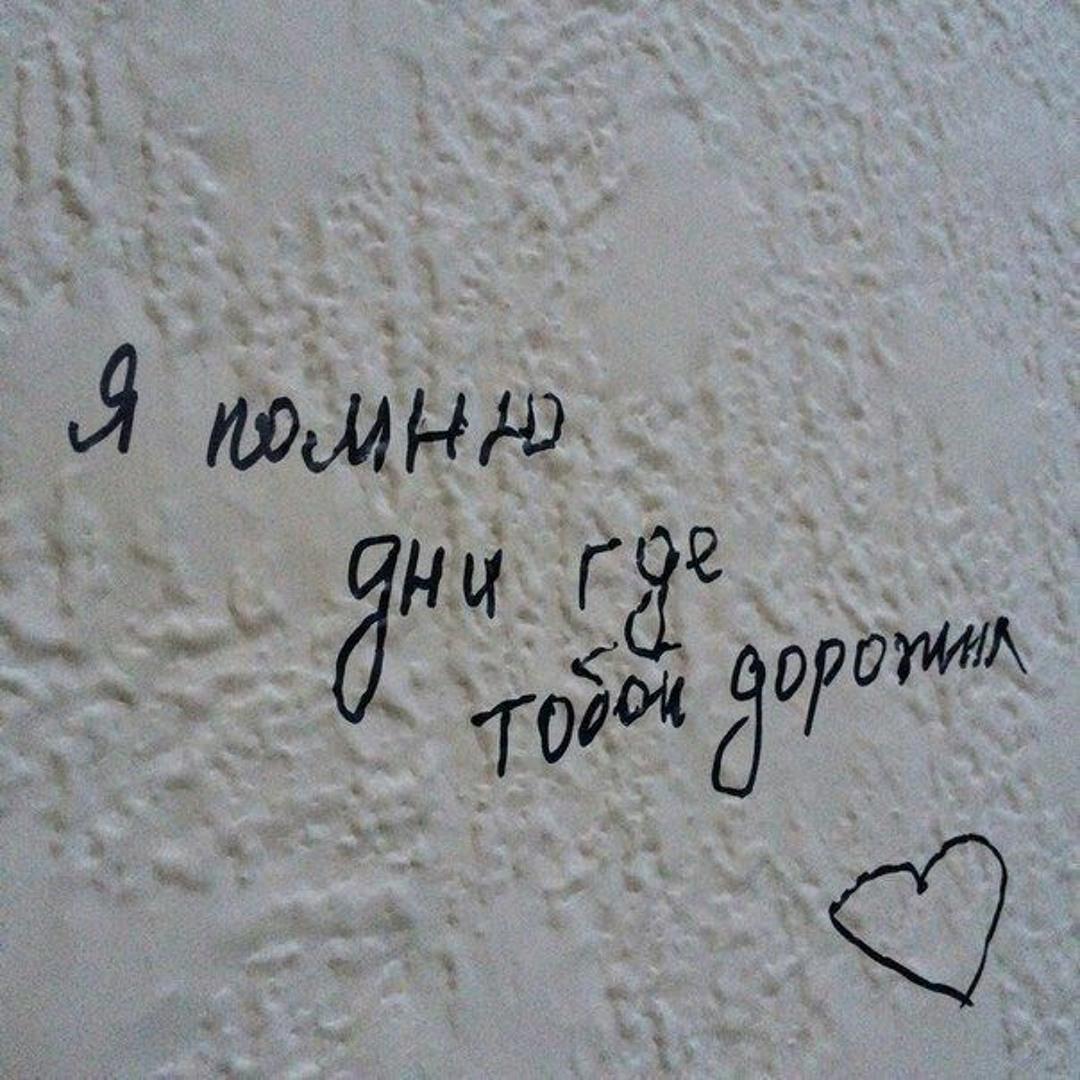 Я помню
дни где
тобой дорожил